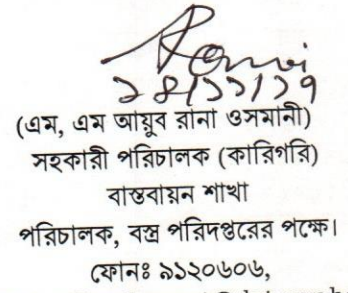 ২৪/১১/১৭
(এম, এম আয়ুব রানা ওসমানী)
সহকারী পরিচালক (কারিগরি)
বাস্তবায়ন শাখা
পরিচালক, বস্ত্র পরিদপ্তরের পক্ষে।
ফোনঃ ৯১২০৬০৬,